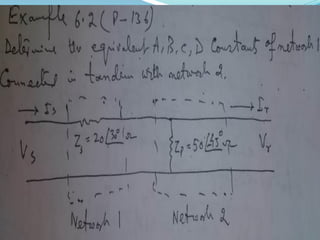 Example 6.2 (P-136)
Determine the equivalent A, B, C, D Constant of network 1
Connected in tandem with network 2.
→ Is → Ir
Vs Zs = 20∠30° Ω Zp = 50∠45° Ω Vr
Network 1 Network 2